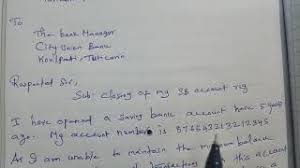 To
The bank Manager
City Union Bank
Koilpatti, Tuticorin
Respected Sir,
Sub: closing of my SB account reg
I have opened a saving bank account here 5 years
ago. My account number is
As I am unable to maintain the minimum balance
this account